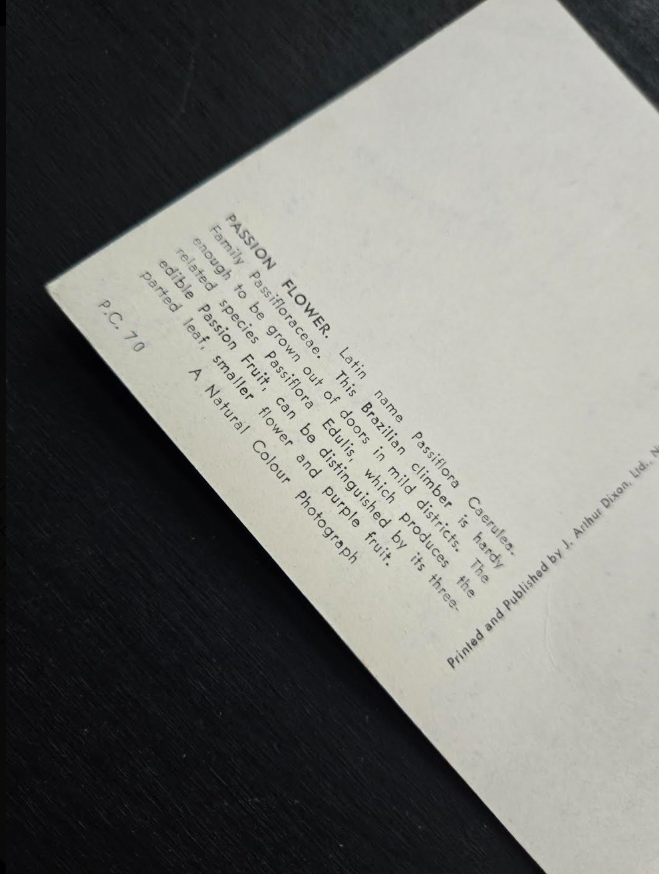 PASSION FLOWER. Latin name Passiflora Caerulea.
Family Passifloraceae. This Brazilian climber is hardy
enough to be grown out of doors in mild districts. The
related species Passiflora Edulis, which produces the
edible Passion Fruit, can be distinguished by its three-
parted leaf, smaller flower and purple fruit.
A Natural Colour Photograph
P.C. 70
Printed and Published by J. Arthur Dixon, Ltd., N